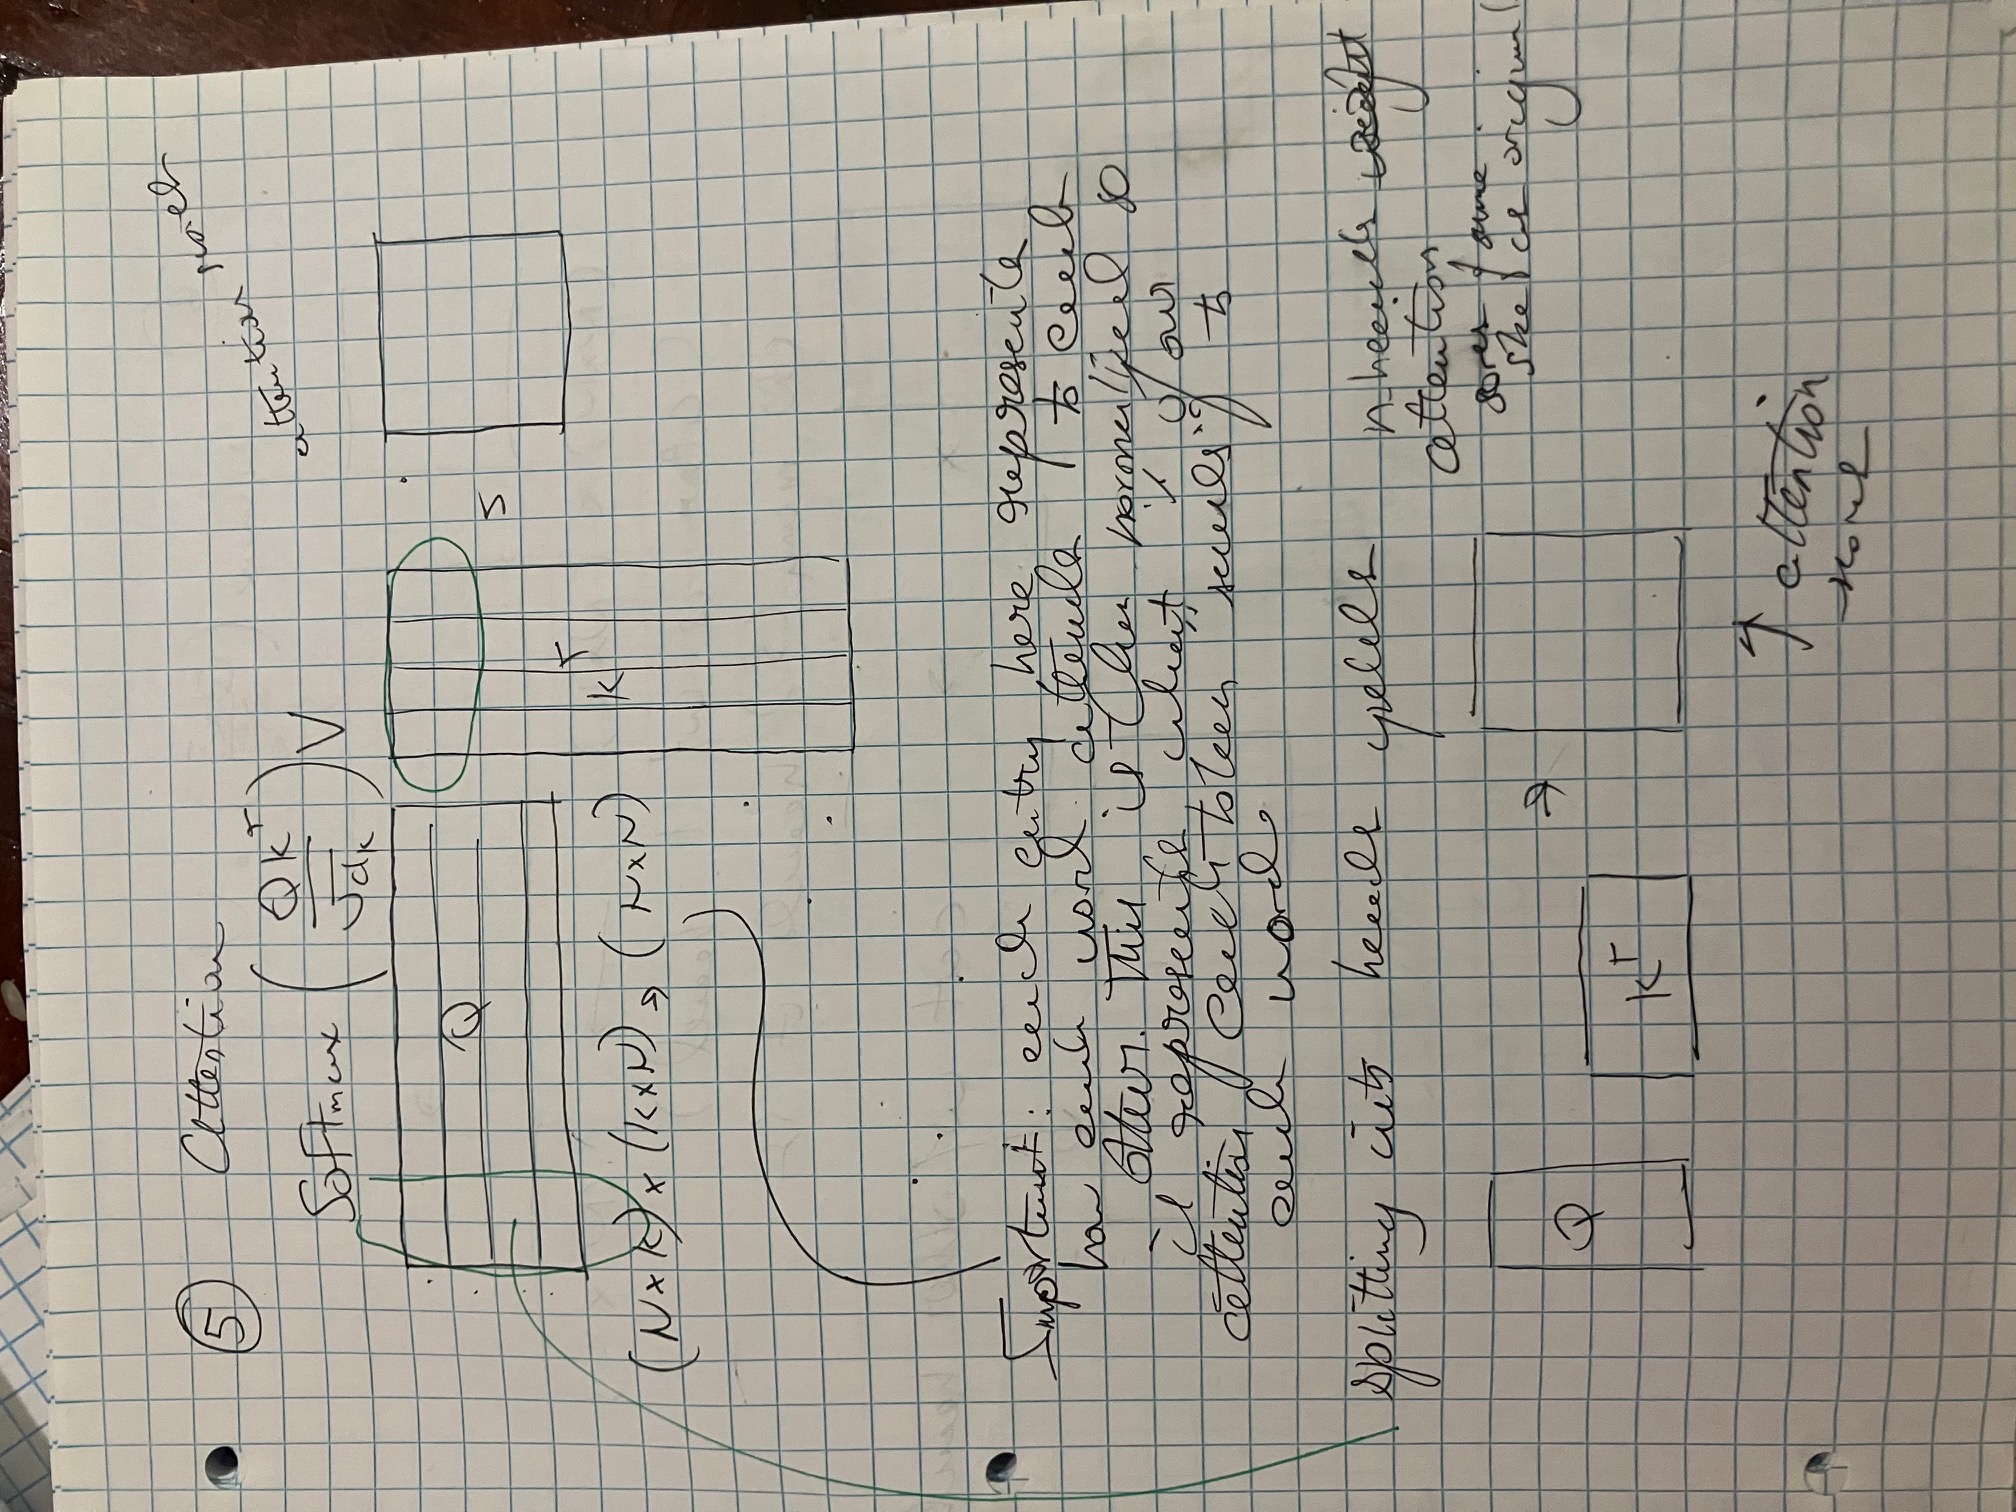 5 Attention
attention scores
Softmax (QK^T / √dk) V
Q
S
K^T
(N×K) × (K×N) → (N×N)
Important: each entry here represents
how each word attends to each
other. This is then normalized so
it represents what % of our
attention each token "sends" to
each word
splitting into heads yields n-heads
attention
scores of same
as original
Q
K^T
→
↑ attention
scores